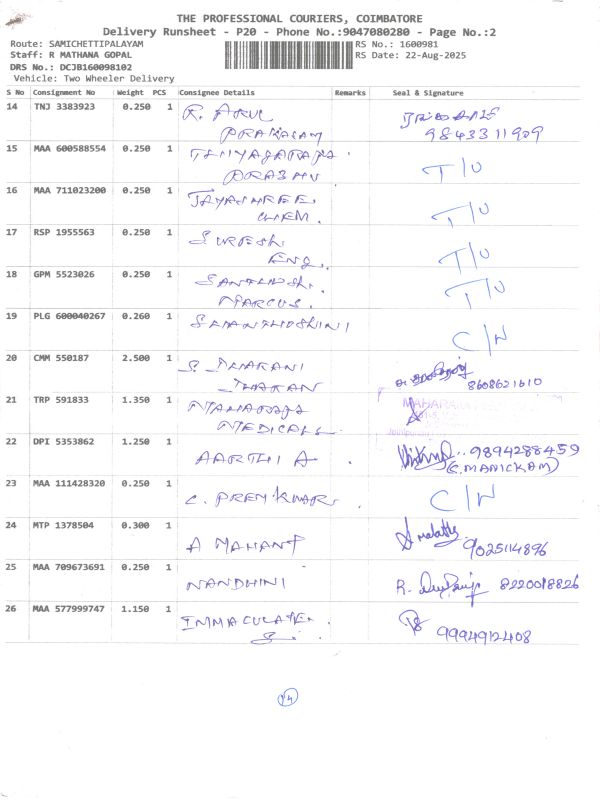 THE PROFESSIONAL COURIERS, COIMBATORE
Delivery Runsheet - P20 - Phone No.:9047080280 - Page No.:2
Route: SAMICHETTIPALAYAM RS No.: 1600981
Staff: R MATHANA GOPAL RS Date: 22-Aug-2025
DRS No.: DCJB160098102
Vehicle: Two Wheeler Delivery
S No Consignment No Weight PCS Consignee Details Remarks Seal & Signature
14 TNJ 3383923 0.250 1 R. ARUL
PRAKASAM 9843311909
15 MAA 600588554 0.250 1 THIYAGARAJA T/U
PRABHU
16 MAA 711023200 0.250 1 JAYASHREE T/U
CHEM.
17 RSP 1955563 0.250 1 SURESH T/U
ENG.
18 GPM 5523026 0.250 1 SANTHOSH. T/U
MARCUS.
19 PLG 600040267 0.260 1 SHANTHOSHINI C/N
20 CMM 550187 2.500 1 S. DHARANI
DHARAN 8608621610
21 TRP 591833 1.350 1 MAHARAJA MAHARAJA
MEDICALS
22 DPI 5353862 1.250 1 AARTHI A. 9894288459
(C.MANICKAM)
23 MAA 111428320 0.250 1 C. PREM KUMAR C/N
24 MTP 1378504 0.300 1 A MAHANT S malathi
9025114896
25 MAA 709673691 0.250 1 NANDHINI R. 8220018826
26 MAA 577999747 1.150 1 IMMACULATE.
S. 9994912408
14